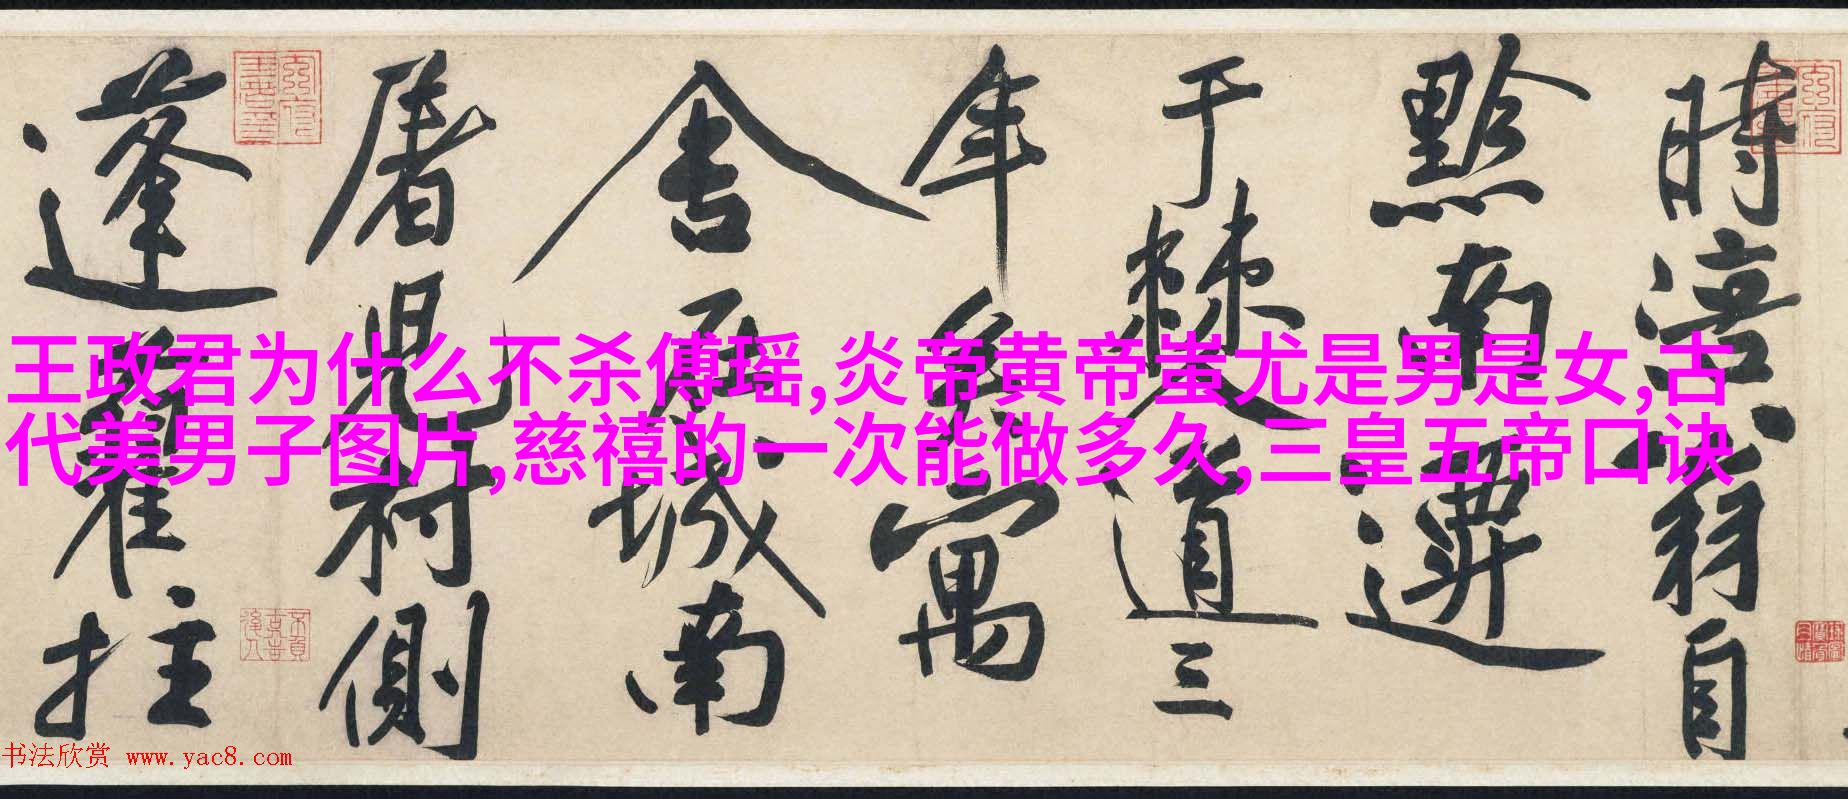 王政君为什么不杀傅瑶,炎帝黄帝蚩尤是男是女,古
代美男子图片,慈禧的一次能做多久,三皇五帝口诀
時涪翁自
黔南遷
于僰道三
年矣寓
舍在城南
屠兒村側
蓬藋拄
书法欣赏 www.yac8.com